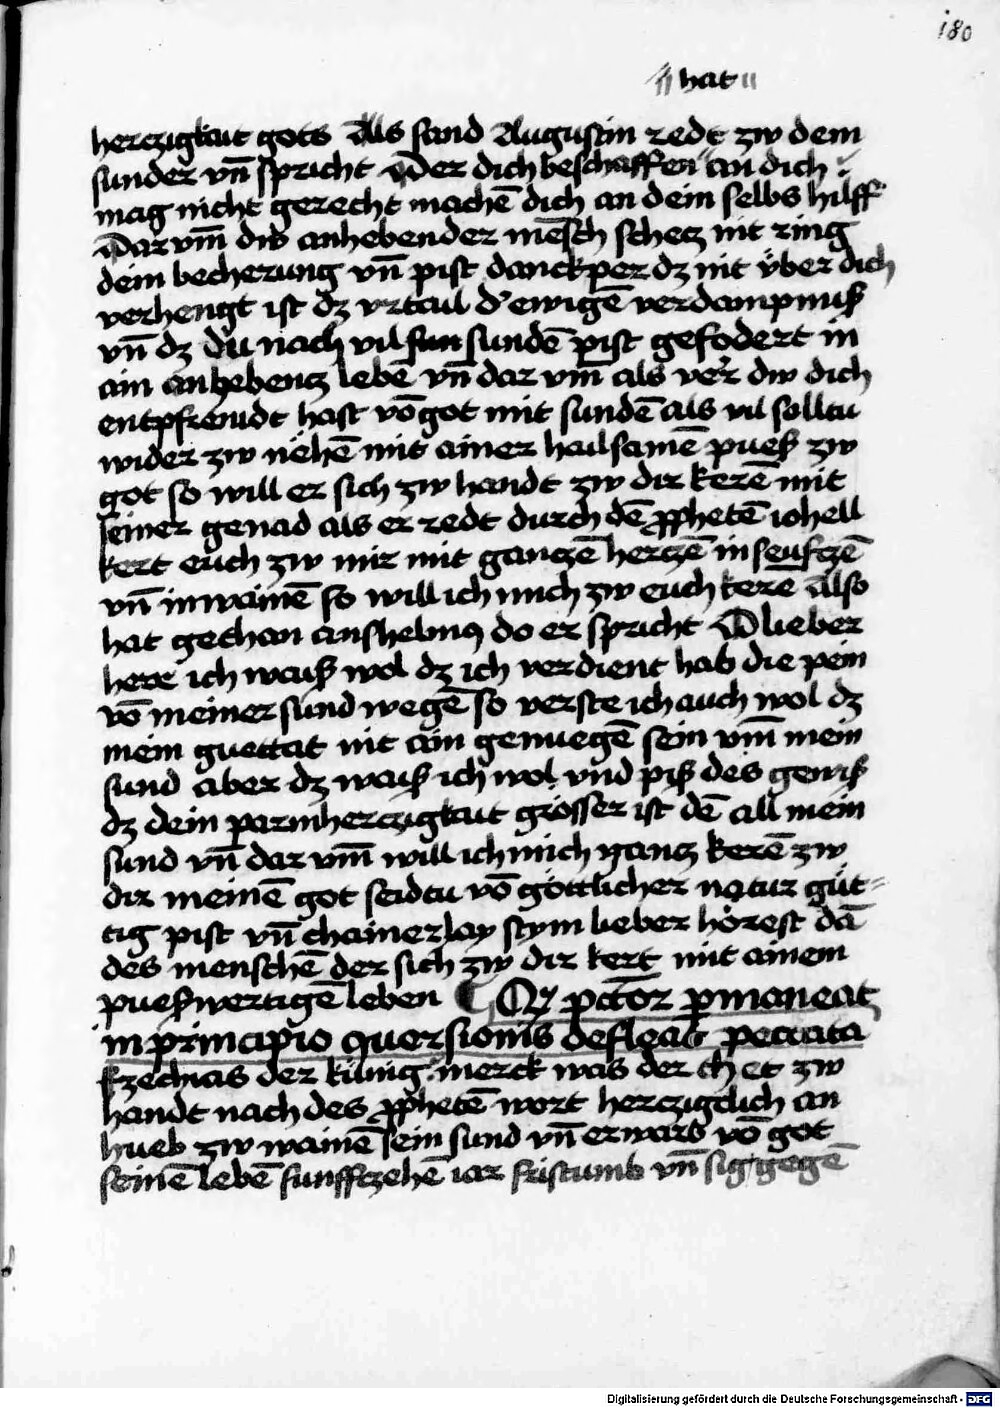 180
hat
herczigkait gots Als sand Augustin redt zw dem
sunder vn̄ spricht Der dich beschaffen an dich
mag nicht gerecht machē dich an dein selbs hilff
Darvm̄ dw anhebender mēsch schecz nit ring
dein becherung vn̄ pist danckper dz nit vber dich
verhengt ist dz vrtail d' ewigē verdampnuß
vn̄ dz du nach vil sun sundē pist gefodert in
ain anhebencz lebē vn̄ dar vm̄ als verr dw dich
entpfremdt hast vō got mit sundē als vil solltu
wider zw nëhē mit ainer hailsamē pueß zw
got so will er sich zw handt zw dir kerē mit
seiner genad als er redt durch dē ꝓphetē iohell
kert euch zw mir mit ganczē herczē in seufczē
vn̄ in wainē so will ich mich zw euch kerē Also
hat gethan anshelmꝯ do er spricht O lieber
herr ich waiß wol dz ich verdient hab die pein
vō meiner sund wegē so verste ich auch wol dz
mein guettat nit ain genuegē sein vm̄ mein
sund aber dz waiß ich wol vnd piß des gewiß
dz dein parmherczigkait grösser ist dē all mein
sund vn̄ dar vm̄ will ich mich gancz kerē zw
dir meinē got seidtu vō göttlicher natur güt-
tig pist vn̄ chainerlay stym lieber hörest dā
des menschē der sich zw dir kert mit ainem
pueßwertigē leben Qͥ pctōr ꝑmaneat
in principio ꝯuersionis defleat peccata
Ezechias der künig merck was der ch et zw
handt nach des ꝓphetē wort hercziglich an
hueb zw wainē sein sund vn̄ erwarb vō got
seinē lebē funffczehē iar fristumb vn̄ sig gegē
Digitalisierung gefördert durch die Deutsche Forschungsgemeinschaft - DFG